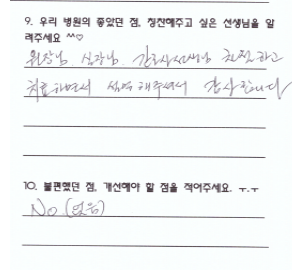 9. 우리 병원의 좋았던 점, 칭찬해주고 싶은 선생님을 알
려주세요 ^^♡
원장님, 실장님, 간호사선생님 친절하고
치료하면서 설명해주셔서 감사합니다
10. 불편했던 점, 개선해야 할 점을 적어주세요. ㅜ.ㅜ
No (없음)